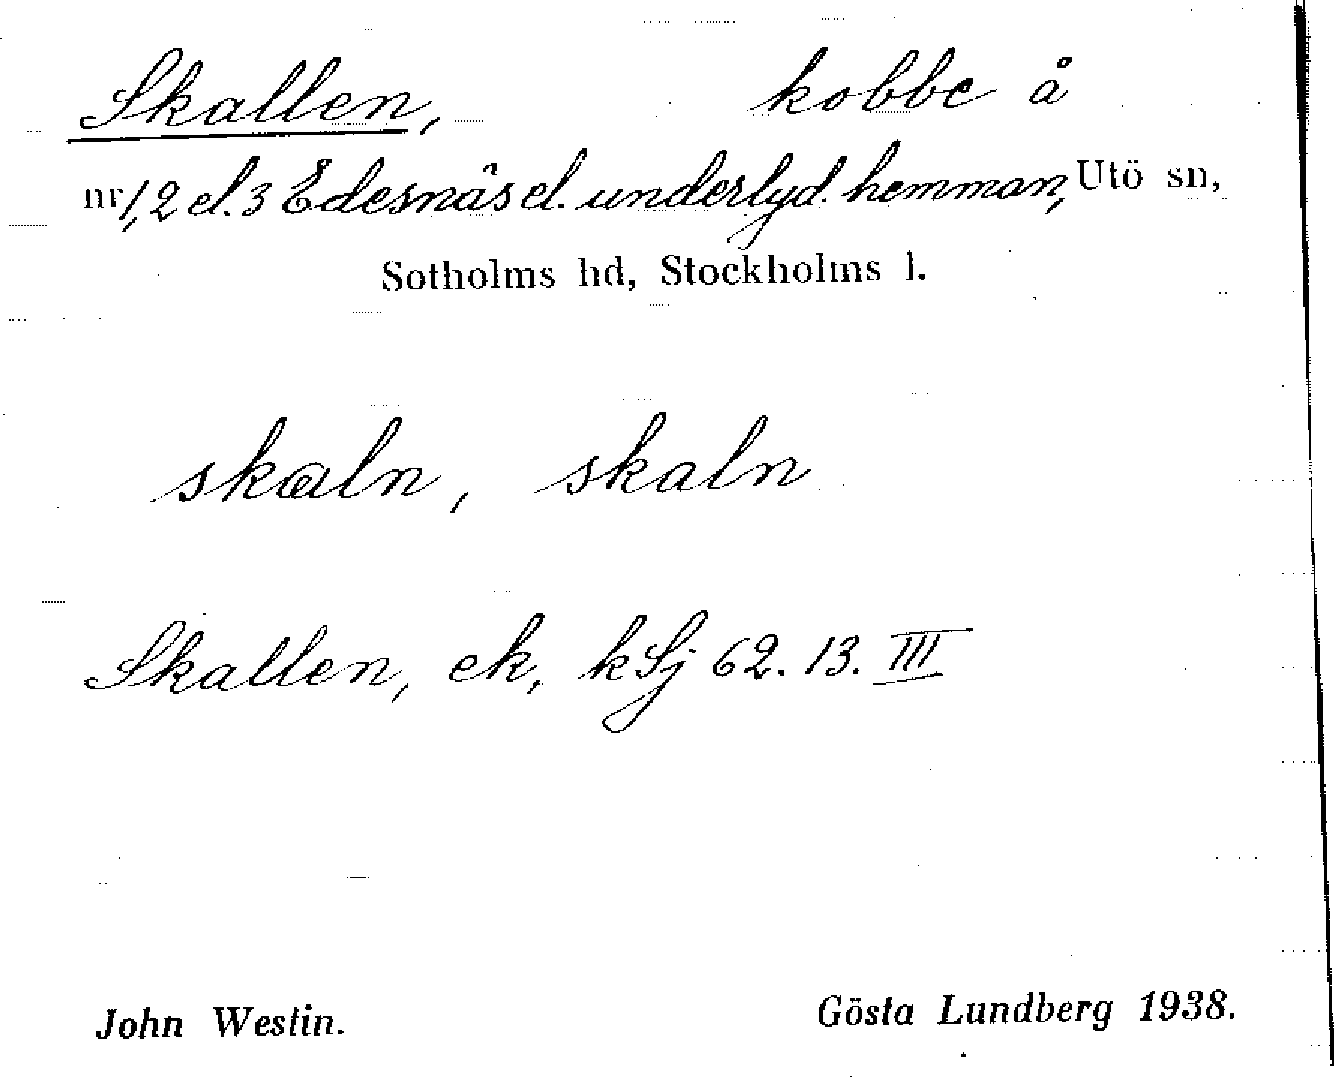 Skallen, kobbe å
nr 1, 2 el. 3 Edesnäs el. underlyd. hemman, Utö sn,
Sotholms hd, Stockholms l.
skaln, skaln
Skallen, ek, kSj 62. 13. III
John Westin. Gösta Lundberg 1938.